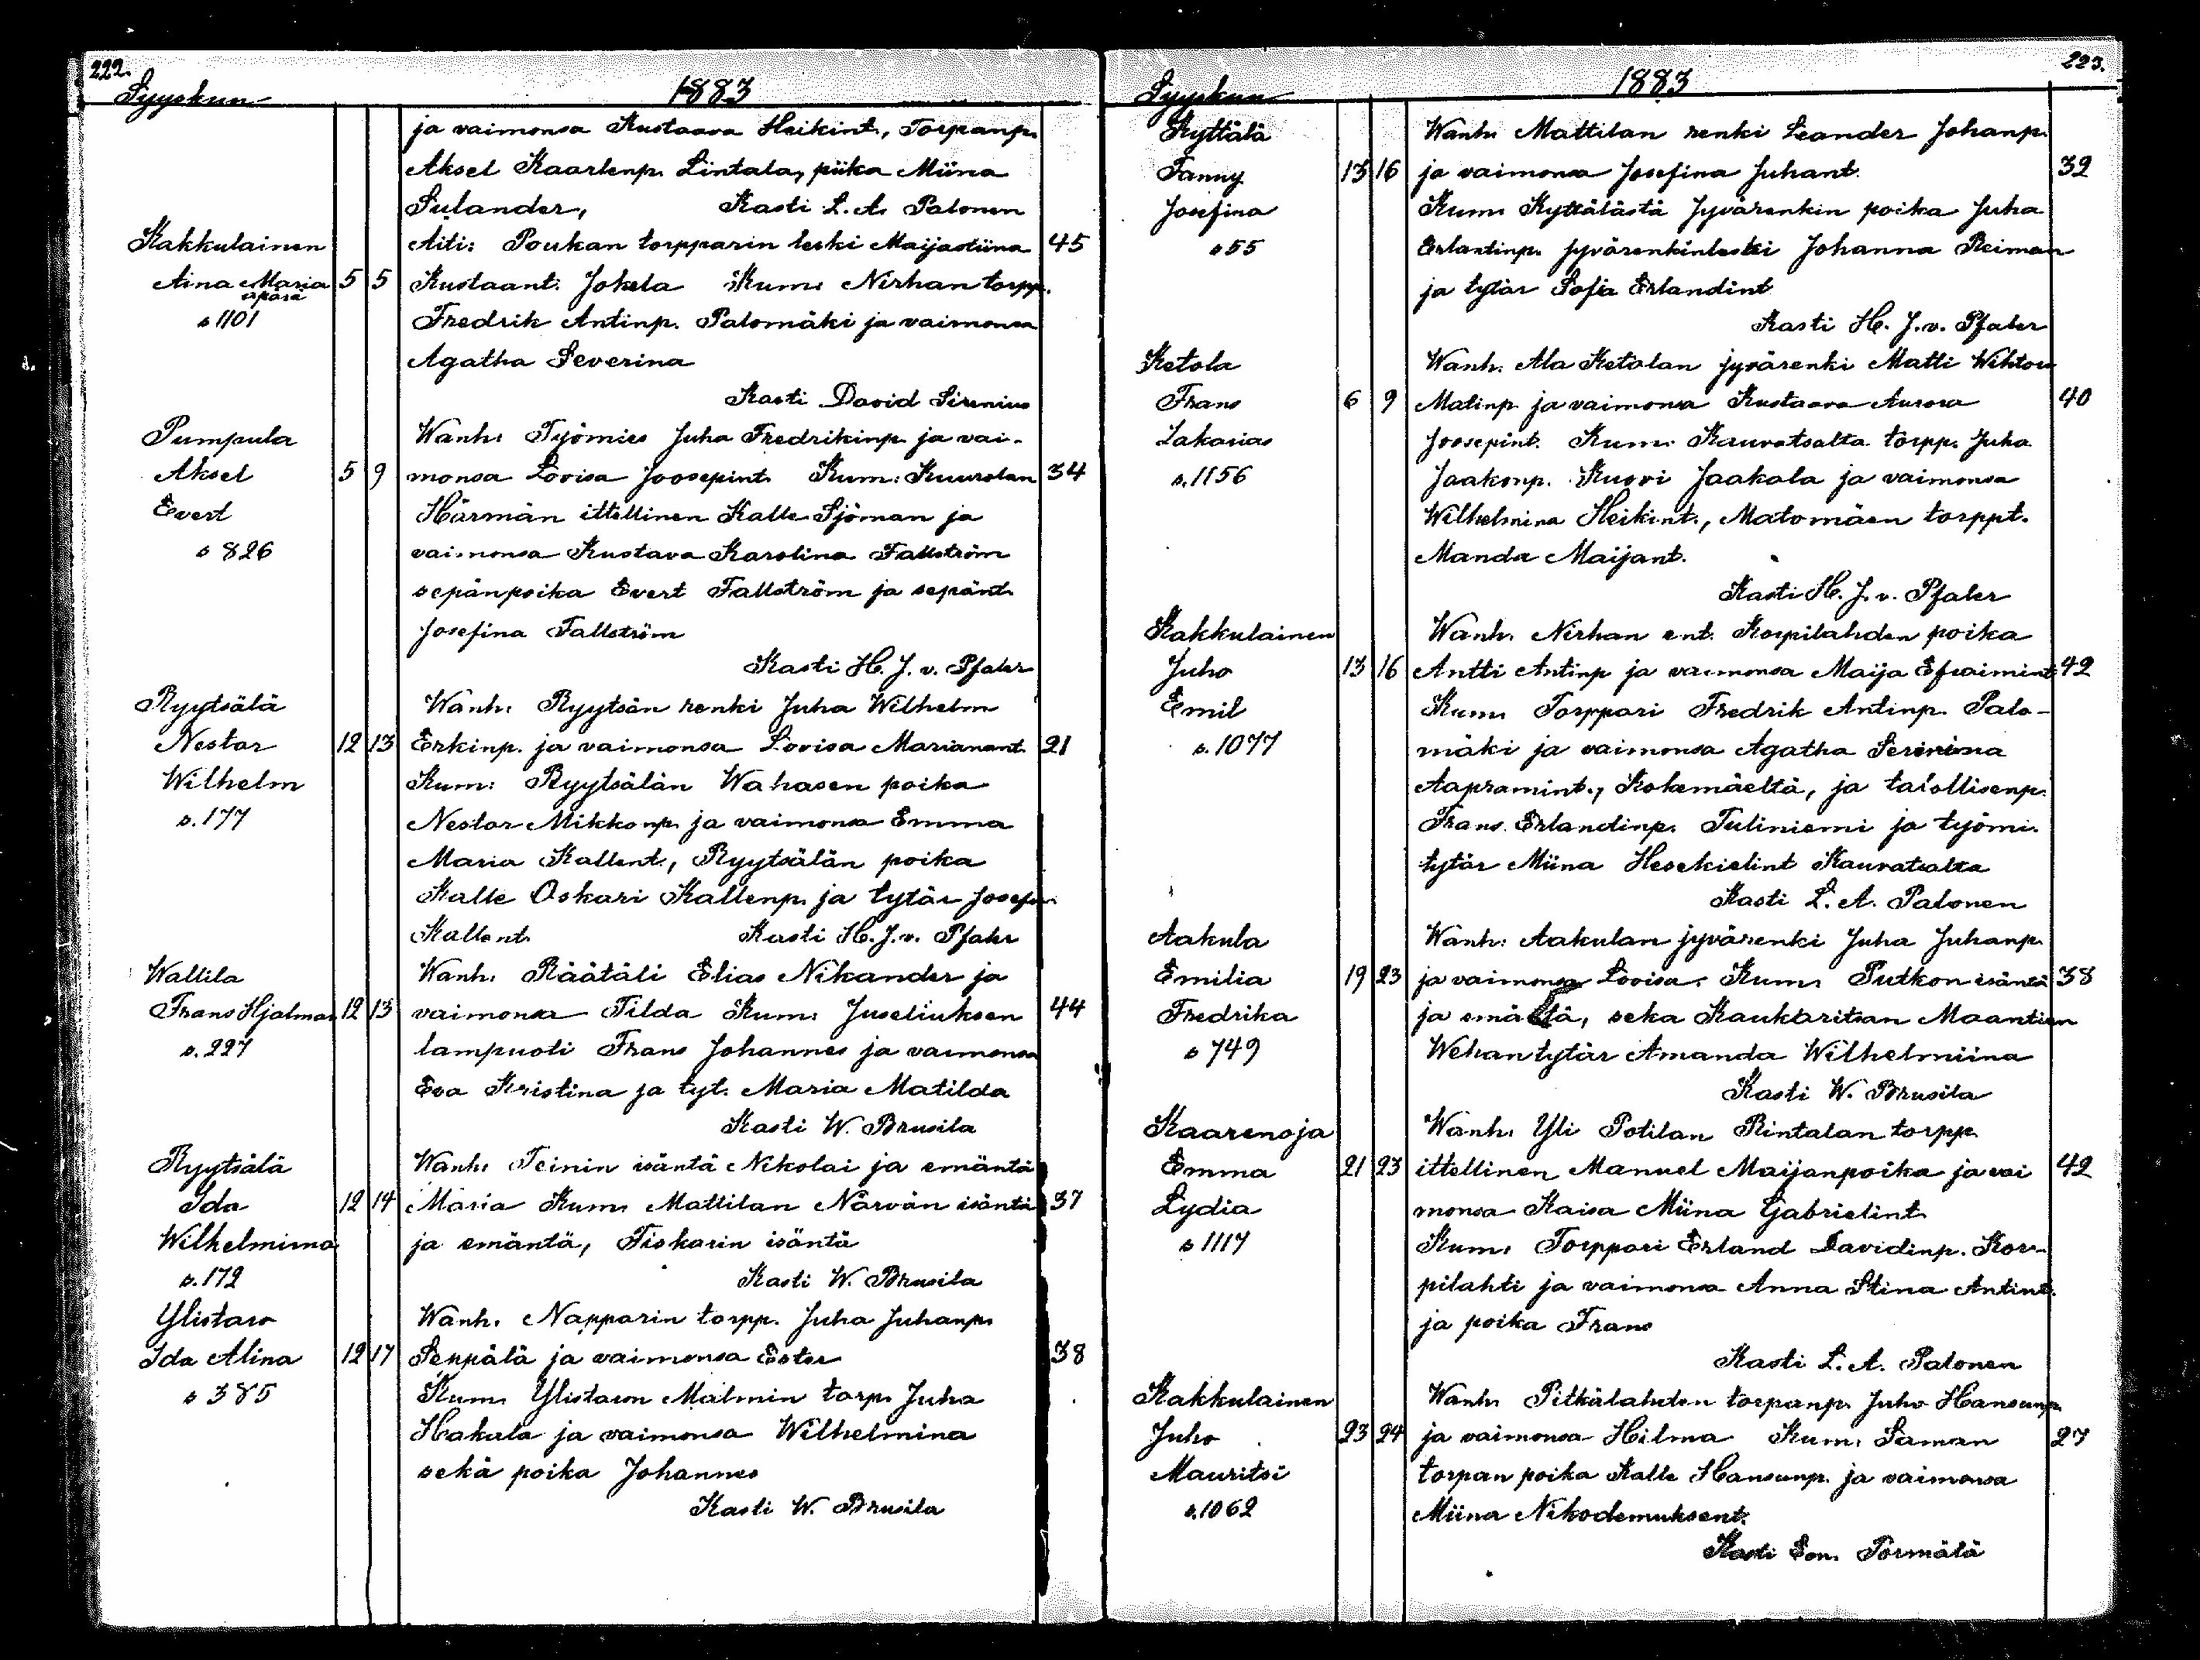 222.
Syyskun
1883
ja vaimonsa Kustaava Heikint., Torpanp.
Aksel Kaarlenp. Lintala, piika Miina
Sulander, Kasti L. A. Palonen
Kakkulainen Äiti: Poukan torpparin leski Maijastiina 45
Aina Maria 5 5 Kustaant. Jokela Kum: Nirhan torpp.
äpärä
s 1101 Fredrik Antinp. Palomäki ja vaimonsa
Agatha Severina
Kasti David Sirenius
Pumpula Wanh: Työmies Juha Fredrikinp. ja vai-
Aksel 5 9 monsa Lovisa Joosepint. Kum: Kuurolan 34
Evert Härmän ittellinen Kalle Sjöman ja
s 826 vaimonsa Kustava Karolina Fallström
sepänpoika Evert Fallström ja sepänt.
Josefina Fallström
Kasti H. J. v. Pfaler
Ryytsälä Wanh: Ryytsän renki Juha Wilhelm
Nestor 12 13 Erkinp. ja vaimonsa Lovisa Marianant. 21
Wilhelm Kum: Ryytsälän Wahasen poika
s. 177 Nestor Mikkonp. ja vaimonsa Emma
Maria Kallent., Ryytsälän poika
Kalle Oskari Kallenp. ja tytär Josefin
Kallent. Kasti H. J. v. Pfaler
Wallila Wanh. Räätäli Elias Nikander ja
Frans Hjalmar 12 13 vaimonsa Tilda Kum: Juseliuksen 44
s. 227 lampuoti Frans Johannes ja vaimonsa
Eva Kristina ja tyt. Maria Matilda
Kasti W. Brusila
Ryytsälä Wanh: Teinin isäntä Nikolai ja emäntä
Ida 12 14 Maria Kum: Mattilan Närvän isäntä 37
Wilhelmina ja emäntä, Fiskarin isäntä
s. 172 Kasti W. Brusila
Ylistaro Wanh. Napparin torpp. Juha Juhanp.
Ida Alina 12 17 Seppälä ja vaimonsa Ester 38
s 385 Kum. Ylistaron Malmin torp. Juha
Hakala ja vaimonsa Wilhelmina
sekä poika Johannes
Kasti W. Brusila
223.
Syyskun
1883
Kyttälä Wanh: Mattilan renki Leander Johanp.
Fanny 13 16 ja vaimonsa Josefina Juhant. 32
Josefina Kum: Kyttälästä Jyvärenkin poika Juha
s 55 Erlantinp. jyvärenkinleski Johanna Reiman
ja tytär Sofia Erlandint
Kasti H. J. v. Pfaler
Ketola Wanh. Ala Ketolan jyvärenki Matti Wihtori
Frans 6 9 Matinp. ja vaimonsa Kustaava Aurora 40
Sakarias Joosepint. Kum: Kauvatsalta torpp. Juha
s. 1156 Jaakonp. Kuovi Jaakola ja vaimonsa
Wilhelmina Heikint., Matomäen torppt.
Manda Maijant.
Kasti H. J. v. Pfaler
Kakkulainen Wanh. Nirhan ent. Korpilahden poika
Juho 13 16 Antti Antinp ja vaimonsa Maija Efraimint. 42
Emil Kum: Torppari Fredrik Antinp. Palo-
s. 1077 mäki ja vaimonsa Agatha Serinima
Aapramint., Kokemäeltä, ja talollisenp.
Frans Erlandinp. Tuliniemi ja työmi.
tytär Miina Hesekielint Kauvatsalta
Kasti L. A. Palonen
Aakula Wanh: Aakulan jyvärenki Juha Juhanp.
Emilia 19 23 ja vaimonsa Lovisa. Kum: Putkon isäntä 38
Fredrika ja emäntä, seka Kaukaritsan Maantien
s 749 Wehan tytär Amanda Wilhelmiina
Kasti W. Brusila
Kaarenoja Wanh: Yli Potilan Rintalan torpp.
Emma 21 23 ittellinen Manuel Maijanpoika ja vai 42
Lydia monsa Kaisa Miina Gabrielint
s 1117 Kum: Torppari Erland Davidinp. Kor-
pilahti ja vaimonsa Anna Stina Antint.
ja poika Frans
Kasti L. A. Palonen
Kakkulainen Wanh: Pitkälahden torpanp. Juho Hansunp.
Juho 23 24 ja vaimonsa Hilma Kum: Saman 27
Mauritsi torpan poika Kalle Hansunp. ja vaimonsa
s. 1062 Miina Nikodemuksent.
Kasti Eon. Törmälä